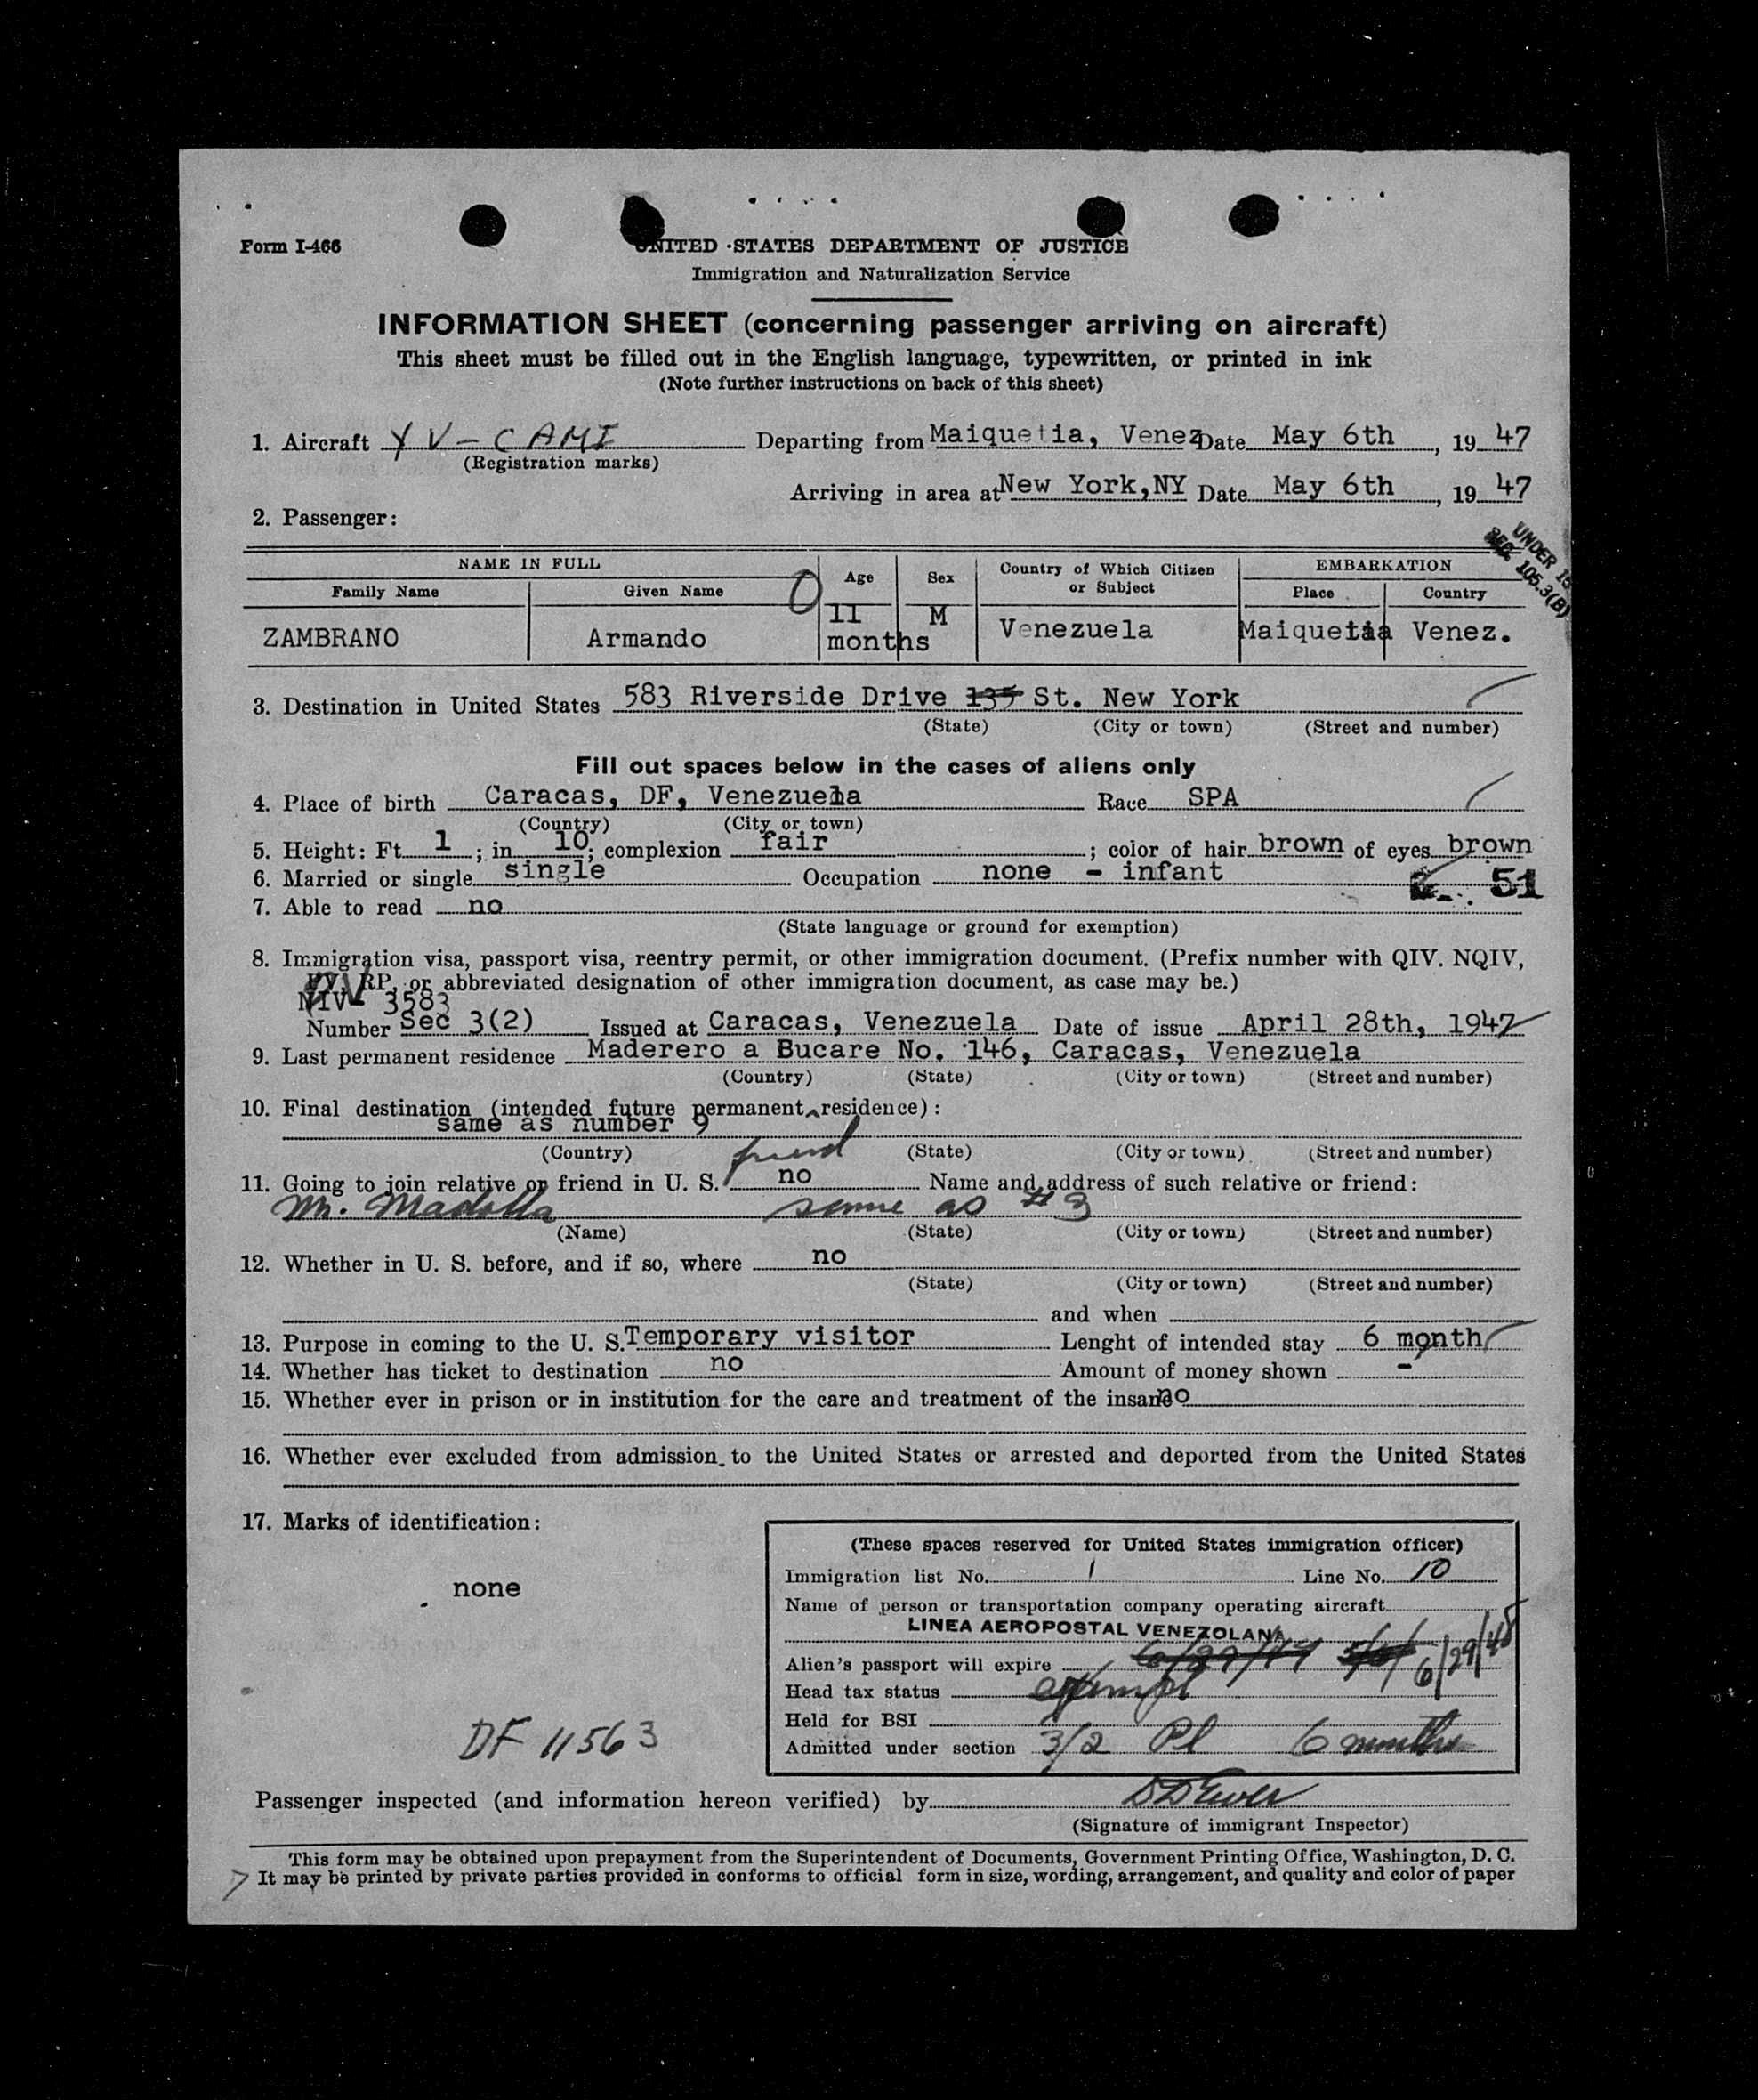 Form I-466
UNITED STATES DEPARTMENT OF JUSTICE
Immigration and Naturalization Service
INFORMATION SHEET (concerning passenger arriving on aircraft)
This sheet must be filled out in the English language, typewritten, or printed in ink
(Note further instructions on back of this sheet)
1. Aircraft YV-CAMI Departing from Maiquetia, Venez Date May 6th, 1947
(Registration marks)
Arriving in area at New York,NY Date May 6th, 1947
2. Passenger:
UNDER 16
SEC. 105.3(B)
NAME IN FULL Age Sex Country of Which Citizen or Subject EMBARKATION
Family Name Given Name Place Country
0
ZAMBRANO Armando 11 months M Venezuela Maiquetia Venez.
3. Destination in United States 583 Riverside Drive 135 St. New York
(State) (City or town) (Street and number)
Fill out spaces below in the cases of aliens only
4. Place of birth Caracas, DF, Venezuela Race SPA
(Country) (City or town)
5. Height: Ft. 1 ; in 10; complexion fair ; color of hair brown of eyes brown
6. Married or single single Occupation none - infant
51
7. Able to read no
(State language or ground for exemption)
8. Immigration visa, passport visa, reentry permit, or other immigration document. (Prefix number with QIV. NQIV,
RP, or abbreviated designation of other immigration document, as case may be.)
NIV- 3583
Number Sec 3(2) Issued at Caracas, Venezuela Date of issue April 28th, 1947
9. Last permanent residence Maderero a Bucare No. 146, Caracas, Venezuela
(Country) (State) (City or town) (Street and number)
10. Final destination (intended future permanent residence):
same as number 9
(Country) (State) (City or town) (Street and number)
friend
11. Going to join relative or friend in U. S. no Name and address of such relative or friend:
Mr. same as #3
(Name) (State) (City or town) (Street and number)
12. Whether in U. S. before, and if so, where no
(State) (City or town) (Street and number)
and when
13. Purpose in coming to the U. S. Temporary visitor Lenght of intended stay 6 month
14. Whether has ticket to destination no Amount of money shown -
15. Whether ever in prison or in institution for the care and treatment of the insane no
16. Whether ever excluded from admission to the United States or arrested and deported from the United States
17. Marks of identification:
none
DF 11563
(These spaces reserved for United States immigration officer)
Immigration list No. 1 Line No. 10
Name of person or transportation company operating aircraft
LINEA AEROPOSTAL VENEZOLANA
Alien's passport will expire 6/29/48
Head tax status exempt
Held for BSI
Admitted under section 3/2 Pl 6 months
Passenger inspected (and information hereon verified) by
(Signature of immigrant Inspector)
This form may be obtained upon prepayment from the Superintendent of Documents, Government Printing Office, Washington, D. C.
It may be printed by private parties provided in conforms to official form in size, wording, arrangement, and quality and color of paper